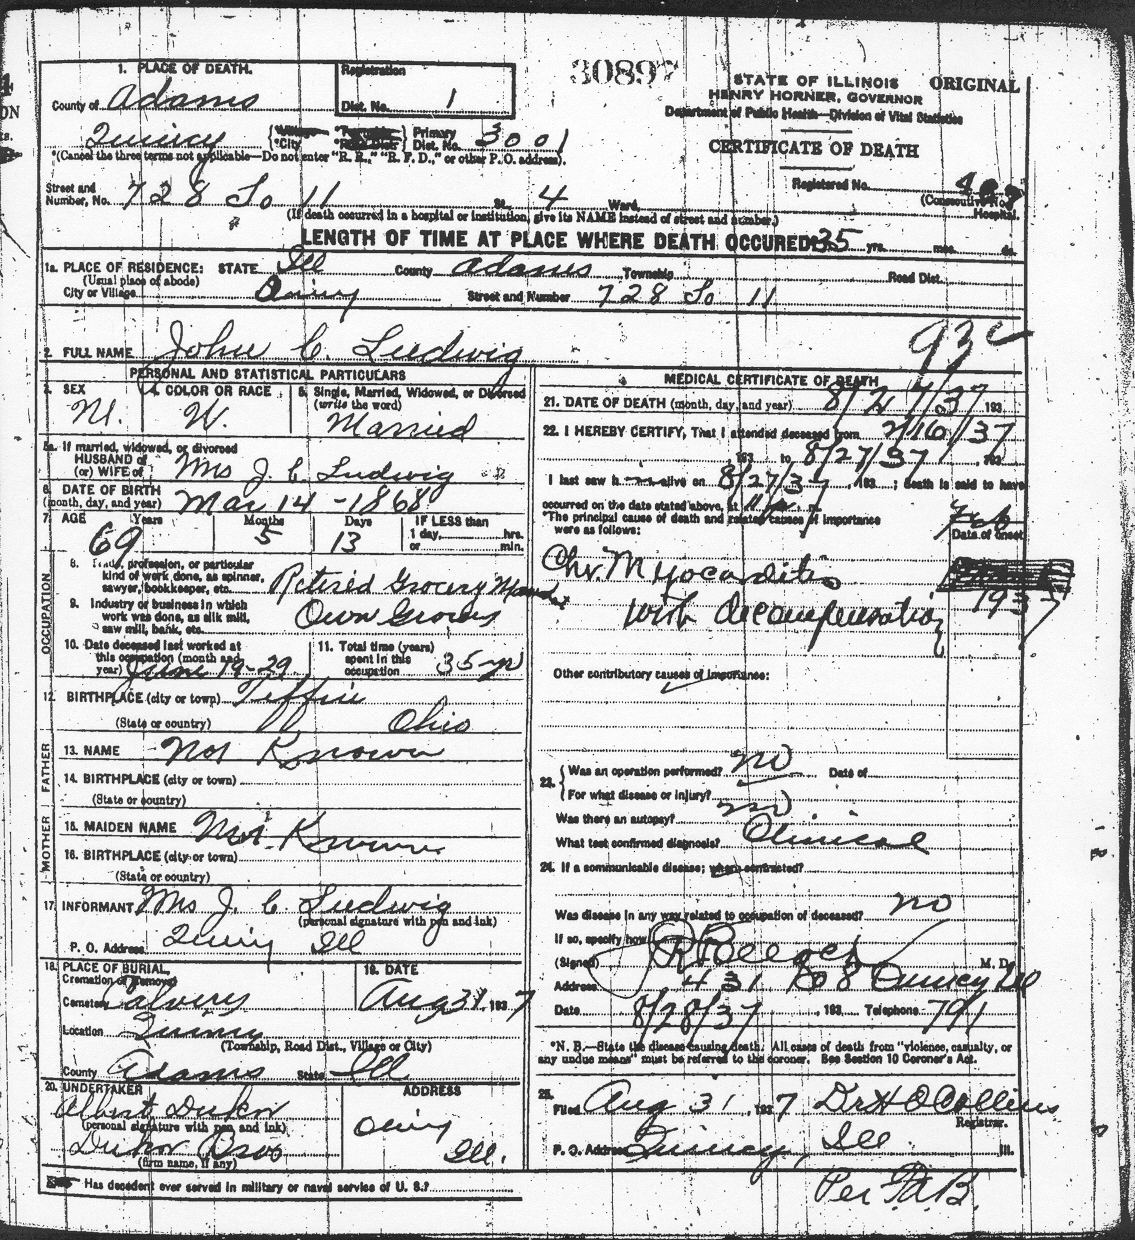 30897
STATE OF ILLINOIS ORIGINAL
HENRY HORNER, GOVERNOR
Department of Public Health—Division of Vital Statistics
CERTIFICATE OF DEATH
Registered No.
(Consecutive No.)
Hospital.
1. PLACE OF DEATH.
County of Adams
Registration
Dist. No. 1
Quincy
*Village *Township
*City *Road Dist.
Primary
Dist. No. 3001
*(Cancel the three terms not applicable—Do not enter "R. R.," "R. F. D.," or other P. O. address).
Street and
Number, No. 728 So 11 St. 4 Ward.
(If death occurred in a hospital or institution, give its NAME instead of street and number.)
LENGTH OF TIME AT PLACE WHERE DEATH OCCURED? 35 yrs. mos. ds.
1a. PLACE OF RESIDENCE: STATE Ill County Adams Township Road Dist.
(Usual place of abode)
City or Village Quincy Street and Number 728 So 11
93c
2. FULL NAME John C. Ludwig
PERSONAL AND STATISTICAL PARTICULARS
3. SEX
M.
4. COLOR OR RACE
W.
5. Single, Married, Widowed, or Divorced
(write the word)
Married
5a. If married, widowed, or divorced
HUSBAND of
(or) WIFE of Mrs J. C. Ludwig
6. DATE OF BIRTH
(month, day, and year) Mar 14 - 1868
7. AGE Years Months Days IF LESS than
69 5 13 1 day, hrs.
or min.
OCCUPATION
8. Trade, profession, or particular
kind of work done, as spinner,
sawyer, bookkeeper, etc. Retired Grocery
9. Industry or business in which
work was done, as silk mill,
saw mill, bank, etc. Own
10. Date deceased last worked at
this occupation (month and
year) June 19-29
11. Total time (years)
spent in this
occupation 35 yr
12. BIRTHPLACE (city or town) Teffin
(State or country) Ohio
FATHER
13. NAME Not Known
14. BIRTHPLACE (city or town)
(State or country)
MOTHER
15. MAIDEN NAME Not Known
16. BIRTHPLACE (city or town)
(State or country)
17. INFORMANT Mrs J. C. Ludwig
(personal signature with pen and ink)
P. O. Address Quincy Ill
18. PLACE OF BURIAL,
Cremation or Removal
Cemetery Calvery
19. DATE
Aug 31, 1937
Location Quincy
(Township, Road Dist., Village or City)
County Adams State Ill
20. UNDERTAKER ADDRESS
Albert Duker
(personal signature with pen and ink)
Quincy
Duker Bros Ill.
(firm name, if any)
Has decedent ever served in military or naval service of U. S.?
MEDICAL CERTIFICATE OF DEATH
21. DATE OF DEATH (month, day, and year) 8/27/37 193
22. I HEREBY CERTIFY, That I attended deceased from 2/16/37
193 to 8/27/37, 193
I last saw h alive on 8/27/37, 193; death is said to have
occurred on the date stated above, at m
*The principal cause of death and related causes of importance
were as follows:
Feb
Date of onset
Chr. Myocarditis
1937
with decompensation
Other contributory causes of importance:
23. Was an operation performed? no Date of
For what disease or injury?
Was there an autopsy? no
What test confirmed diagnosis? Clinical
24. If a communicable disease; where contracted?
Was disease in any way related to occupation of deceased? no
If so, specify how
(Signed) M. D.
Address 431 So 8 Quincy Ill
Date 8/28/37, 193 Telephone 791
*N. B.—State the disease causing death. All cases of death from "violence, casualty, or
any undue means" must be referred to the coroner. See Section 10 Coroner's Act.
25.
Filed Aug 31, 1937 Dr H O Collins
Registrar.
P. O. Address Quincy, Ill Ill.
Per